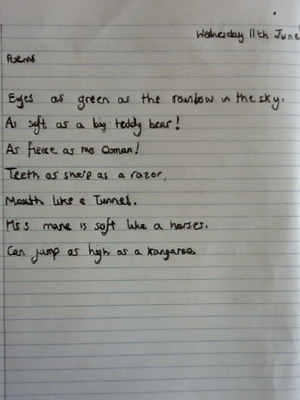 Wednesday 11th June
Poems
Eyes as green as the rainbow in the sky.
As soft as a big teddy bear!
As fierce as mrs Osman!
Teeth as sharp as a razor,
Mouth like a Tunnel.
His mane is soft like a horses.
Can jump as high as a kangaroo